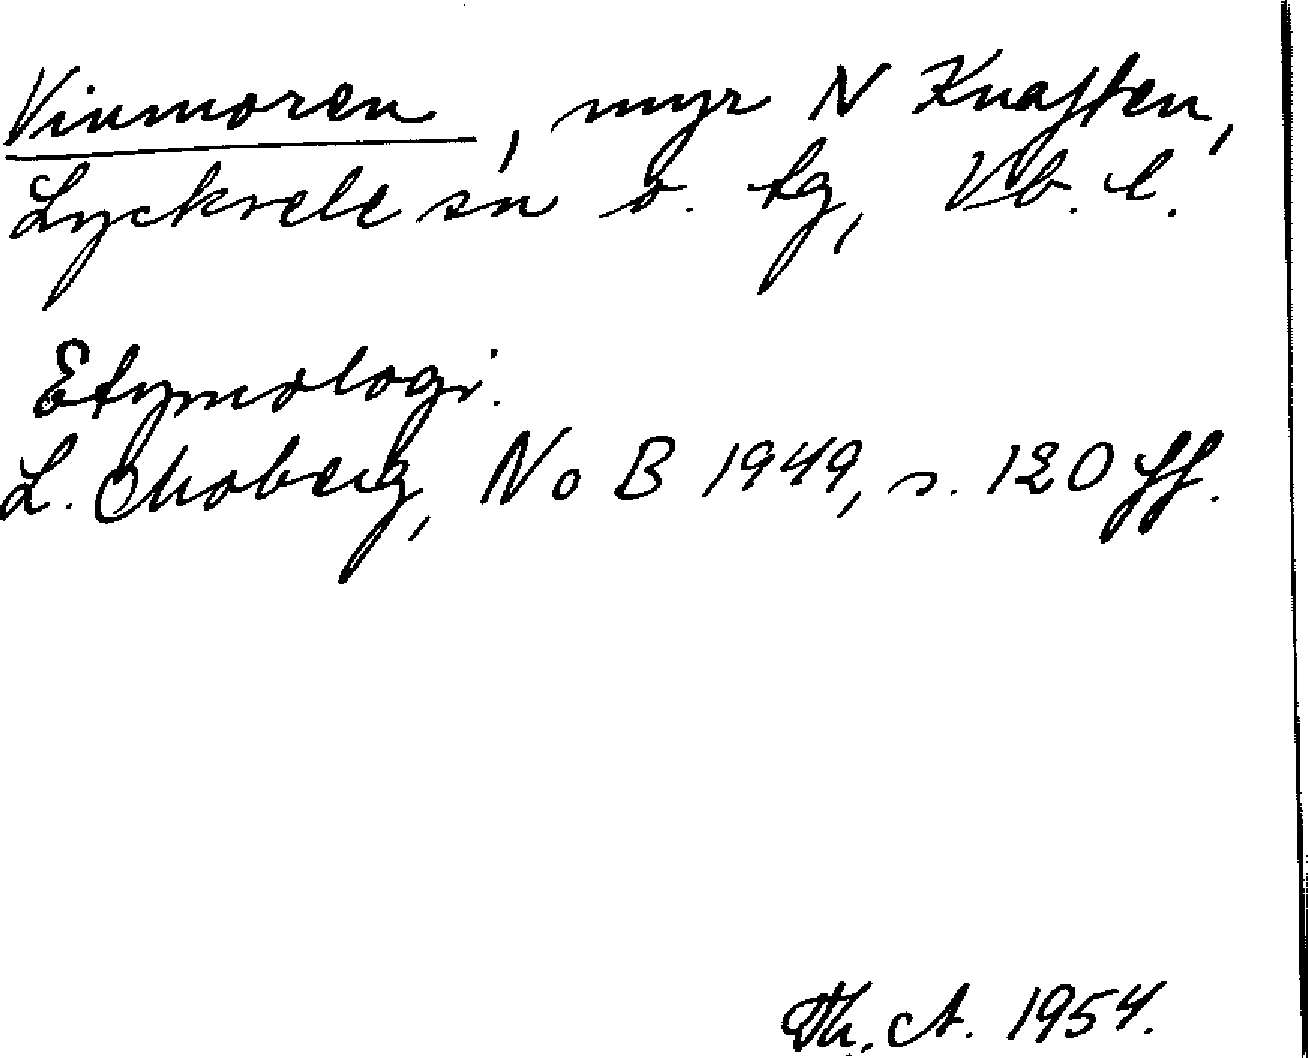 Vinmoren, myr N Knaften,
Lycksele sn o. tg, Vb. l.
Etymologi.
L. Moberg, NoB 1949, s. 120 ff.
Th. A. 1954.